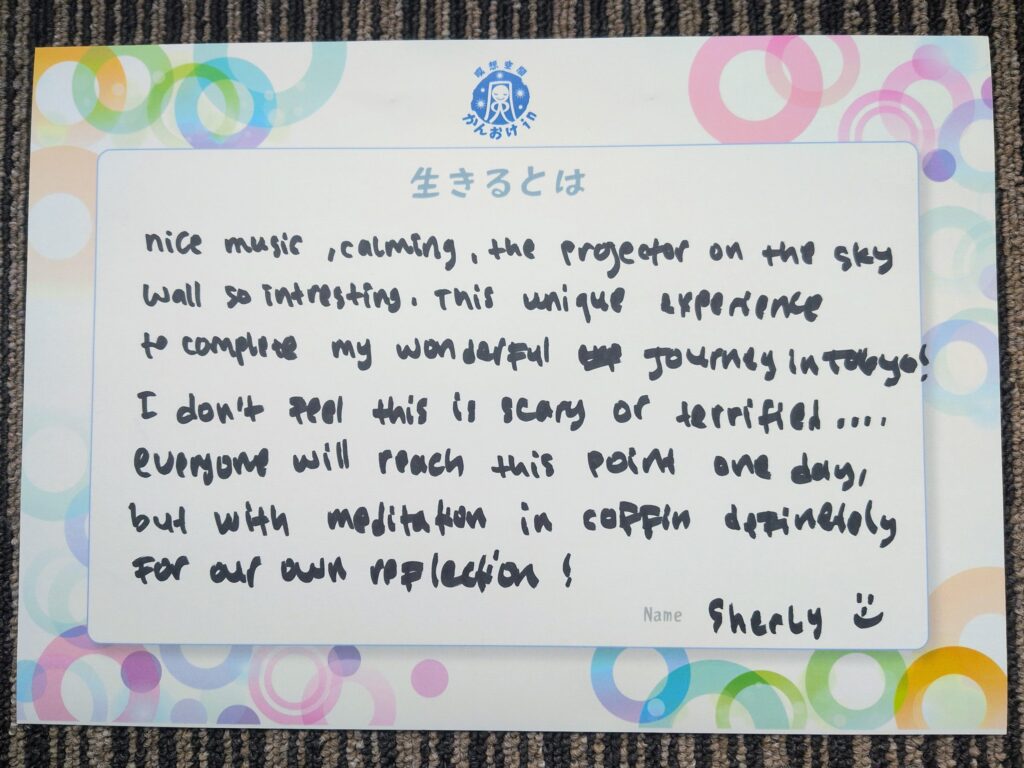 瞑想空間
かんおけin
生きるとは
nice music , calming , the projector on the sky
wall so intresting. This unique experience
to complete my wonderful Journey in Tokyo!
I don't feel this is scary or terrified ....
everyone will reach this point one day,
but with meditation in coffin definetely
For our own reflection !
Name Sherly